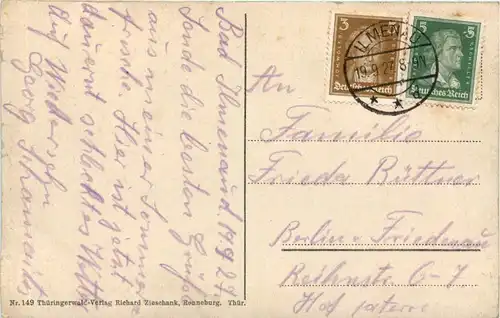 Bad Ilmenau d. 19.9.27.
Sende die besten Grüße
aus meiner Sommer-
frische. Hier ist jetzt
dauernd schlechtes
Auf Wiedersehn
Georg
3
5
Deutsches Reich
Deutsches Reich
ILMENAU
An
Familie
Frieda Büttner
Berlin-Friedenau
6-7
Hof parterre
Nr. 149 Thüringerwald-Verlag Richard Zieschank, Ronneburg. Thür.